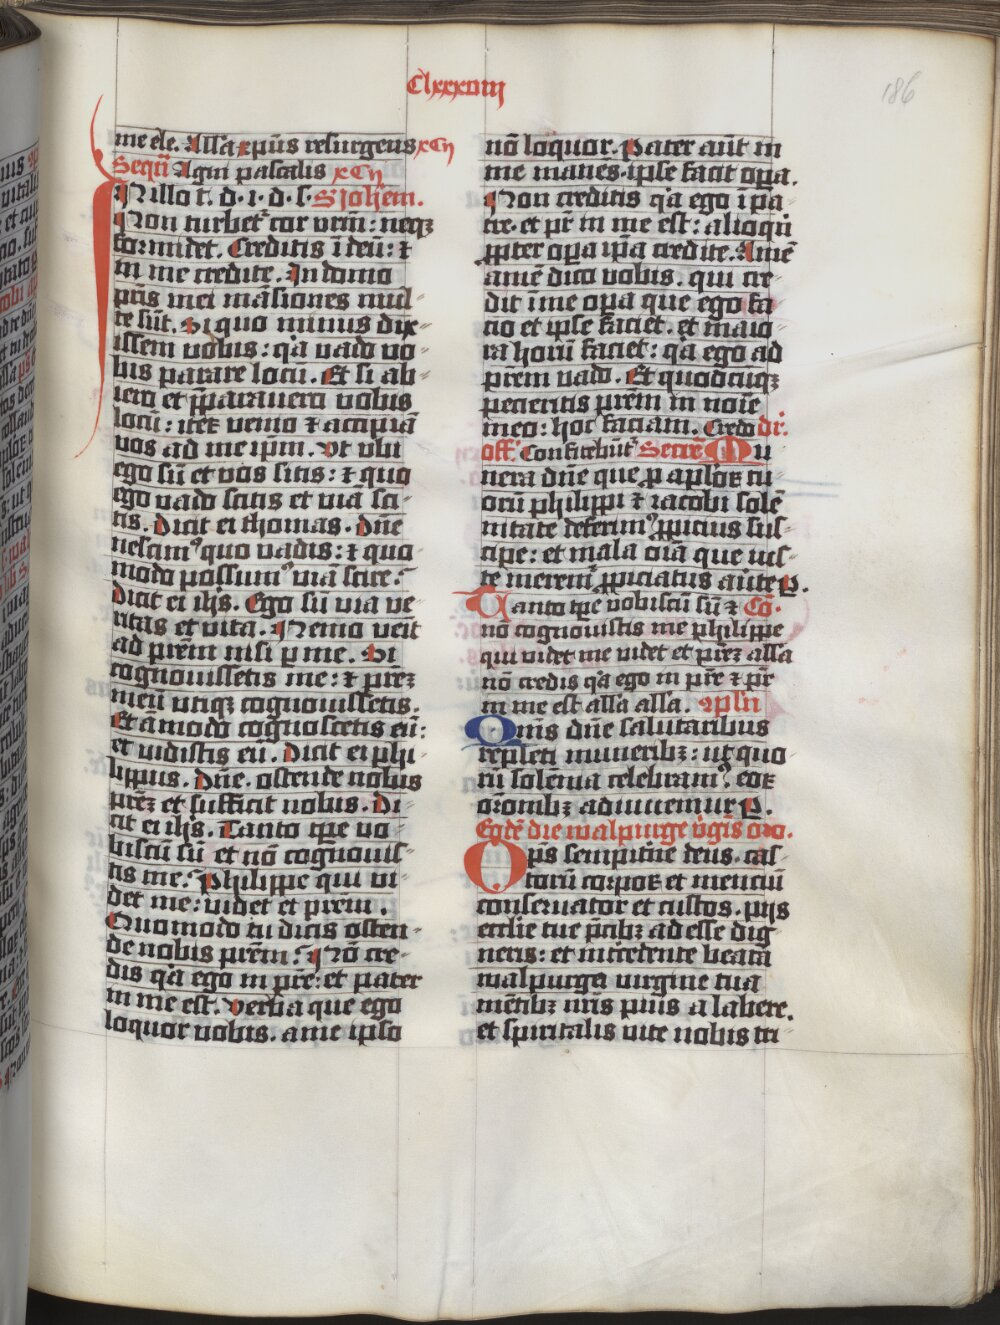 Clxxxviij
186
me ele. Alla xpūs resurgens xCij
Sequē Agni paschalis xCij
IN illo t. d. i. d. s. S Johem.
Non turbet᷑ cor vrm̄ : neqꝫ
formidet. Creditis ī deū : ⁊
in me credite. In domo
pr̄is mei māsiones mul⸗
te sūt. Si quo minus dix⸗
issem vobis : q̄a vado vo⸗
bis parare locū. Et si ab⸗
iero et p̄parauero vobis
locū : iteꝝ venio ⁊ accipiā
vos ad me ip̄m. Vt vbi
ego sū et vos sitis : ⁊ quo
ego vado scitis et viā sci⸗
tis. Dicit ei thomas. Dn̄e
nescimꝰ quo vadis : ⁊ quo⸗
modo possumꝰ viā scire?
Dicit ei ih̄s. Ego sū via ve⸗
ritas et vita. Nemo venit
ad prēm nisi ꝑ me. Si
cognouissetis me : ⁊ pr̄eꝫ
meū vtiqꝫ cognouissetis.
Et āmodo cognoscetis eū :
et vidistis eū. Dicit ei phi⸗
lippus. Dn̄e. ostende nobis
pr̄eꝫ et sufficit nobis. Di⸗
cit ei ih̄s. Tanto tp̄e vo⸗
biscū sū et nō cognouis⸗
tis me? Philippe qui vi⸗
det me : videt et prēm.
Quomodo tu dicis osten⸗
de nobis prēm? Nō cre⸗
dis q̄a ego in pr̄e : et pater
in me est. Verba que ego
loquor vobis. a me ipso
nō loquor. Pater aūt in
me manēs. ipse facit oꝑa.
Non creditis q̄a ego ī pa
tre. et pr̄ in me est : alioqn̄
ꝓpter oꝑa ip̄a credite. Amē
amē dico vobis. qui cre
dit ī me oꝑa que ego fa
cio et ipse faciet. et maio
ra horū faciet : q̄a ego ad
prēm vado. Et quodcūqꝫ
pecieritis prēm in noīe
meo : hoc faciam. Credo dr̄.
off. Confitebūt᷑ Secrē Mu
nera dn̄e que ꝓ aplōꝝ tu
orū philippi ⁊ iacobi solē
nitate deferimꝰ ꝓpicius sus⸗
cipe : et mala oīa que ius⸗
te meremꝰ ꝓpiciatus auerte P.
Tanto tp̄e vobiscū sū ⁊ Cō.
nō cognouistis me philippe
qui videt me videt et pr̄eꝫ alla
nō credis q̄a ego in pr̄e ⁊ pr̄
in me est alla alla. 
Qm̄s dn̄e salutaribus
repleti muneribꝫ : ut quo
rū solenia celebramꝰ. eoꝝ
oro̅nibꝫ adiuuemur P.
Eodē die walpurge v̄gīs oro.
Omps sempitn̄e deus. cas⸗
torū corpoꝝ et mentiū
conseruator et custos. prijs
ecclīe tue p̄cibꝫ adesse dig
neris : et intercedente beata
walpurga virgine tua
mētibꝫ nr̄is prius a labere.
et spiritalis vite nobis in